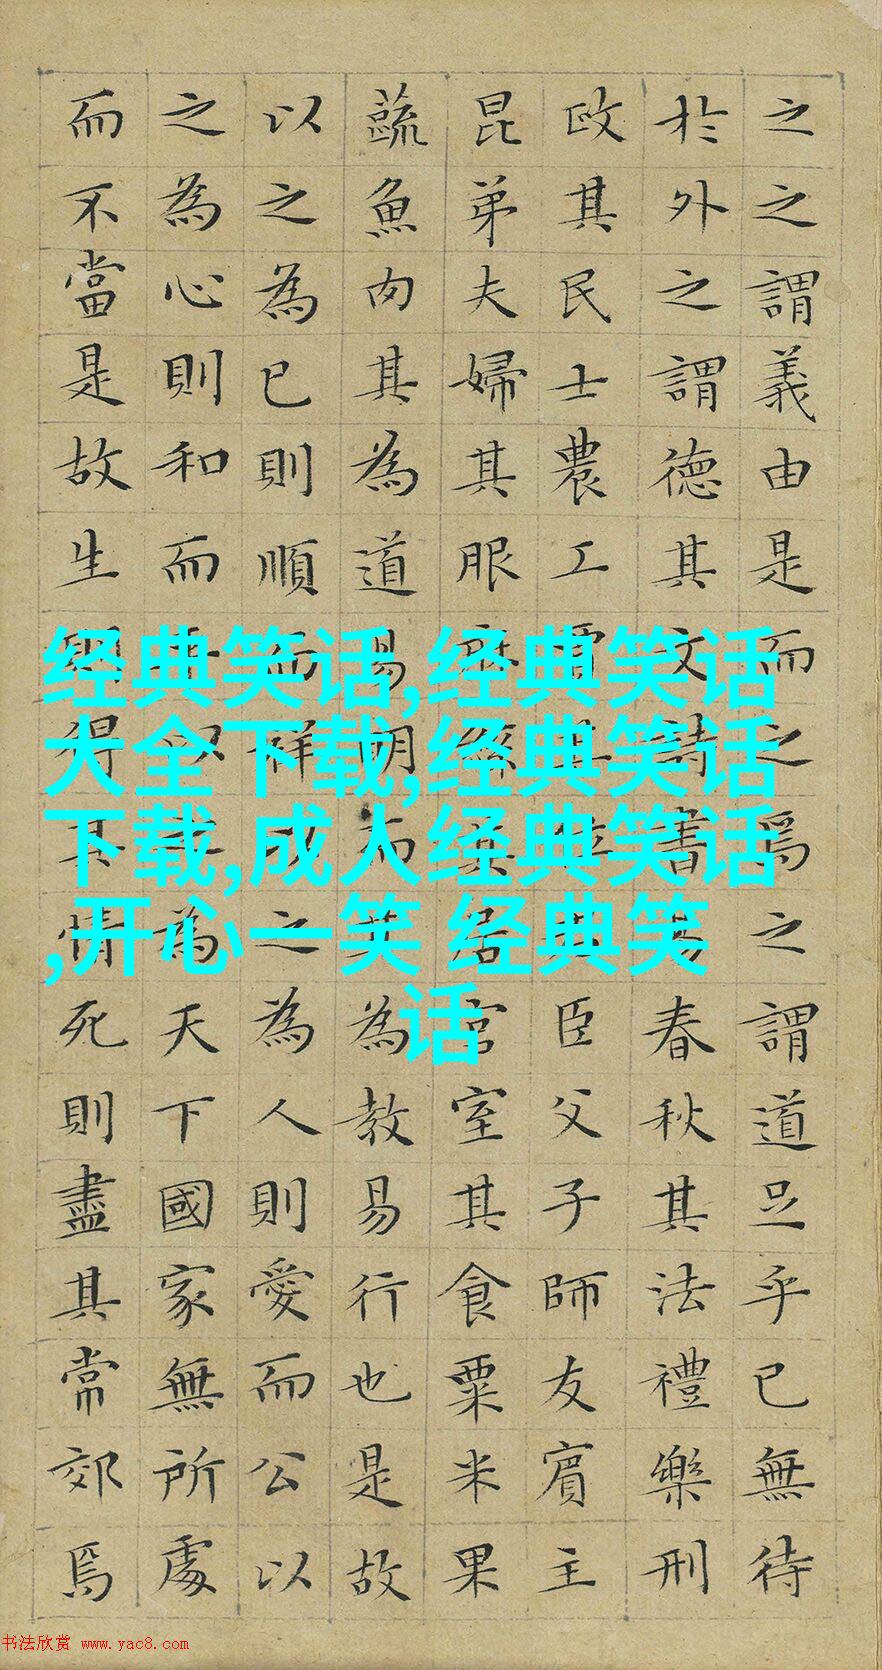 之之謂義由是而之焉之謂道足乎已無待
於外之謂德其文詩書易春秋其法禮樂刑
政其民士農工賈其位君臣父子師友賓主
昆弟夫婦其服麻絲其居宮室其食粟米果
蔬魚肉其為道易明而其為教易行也是故
以之為已則順而祥以之為人則愛而公以
之為心則和而平以之為天下國家無所處
而不當是故生則得其情死則盡其常郊焉
经典笑话,经典笑话
大全下载,经典笑话
下载,成人经典笑话
,开心一笑 经典笑
话
书法欣赏 www.yac8.com